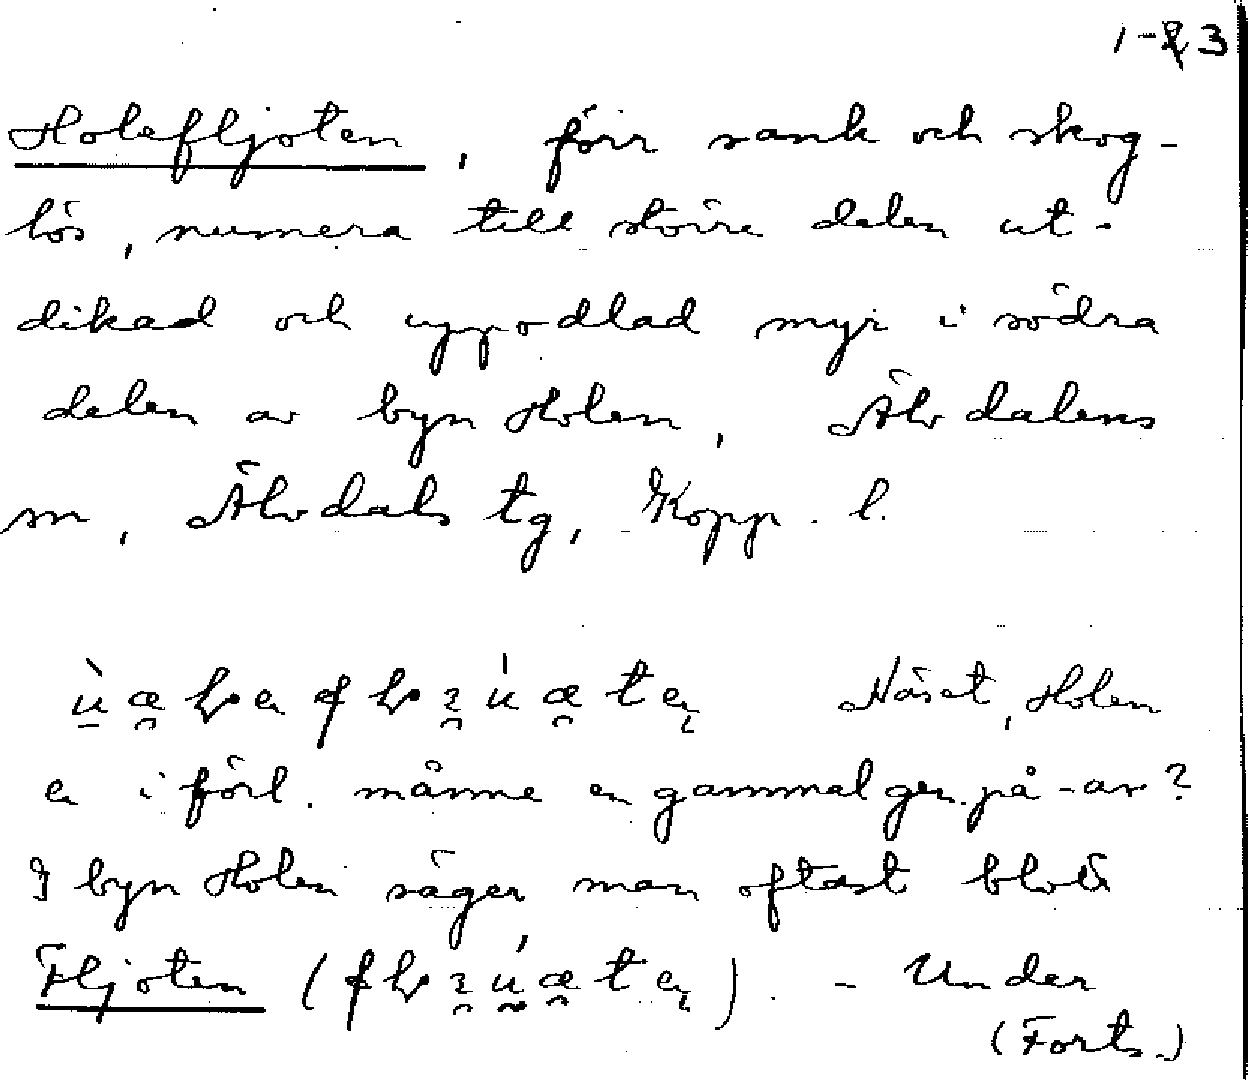 1-3
Holefljoten, förr sank och skog-
lös, numera till större delen ut-
dikad och uppodlad myr i södra
delen av byn Holen, Älvdalens
sn, Älvdals tg, Kopp. l.
Näset, Holen
e i förl. månne en gammal gen. på -ar?
I byn Holen säger man oftast blott
Fljoten - Under
(Forts.)